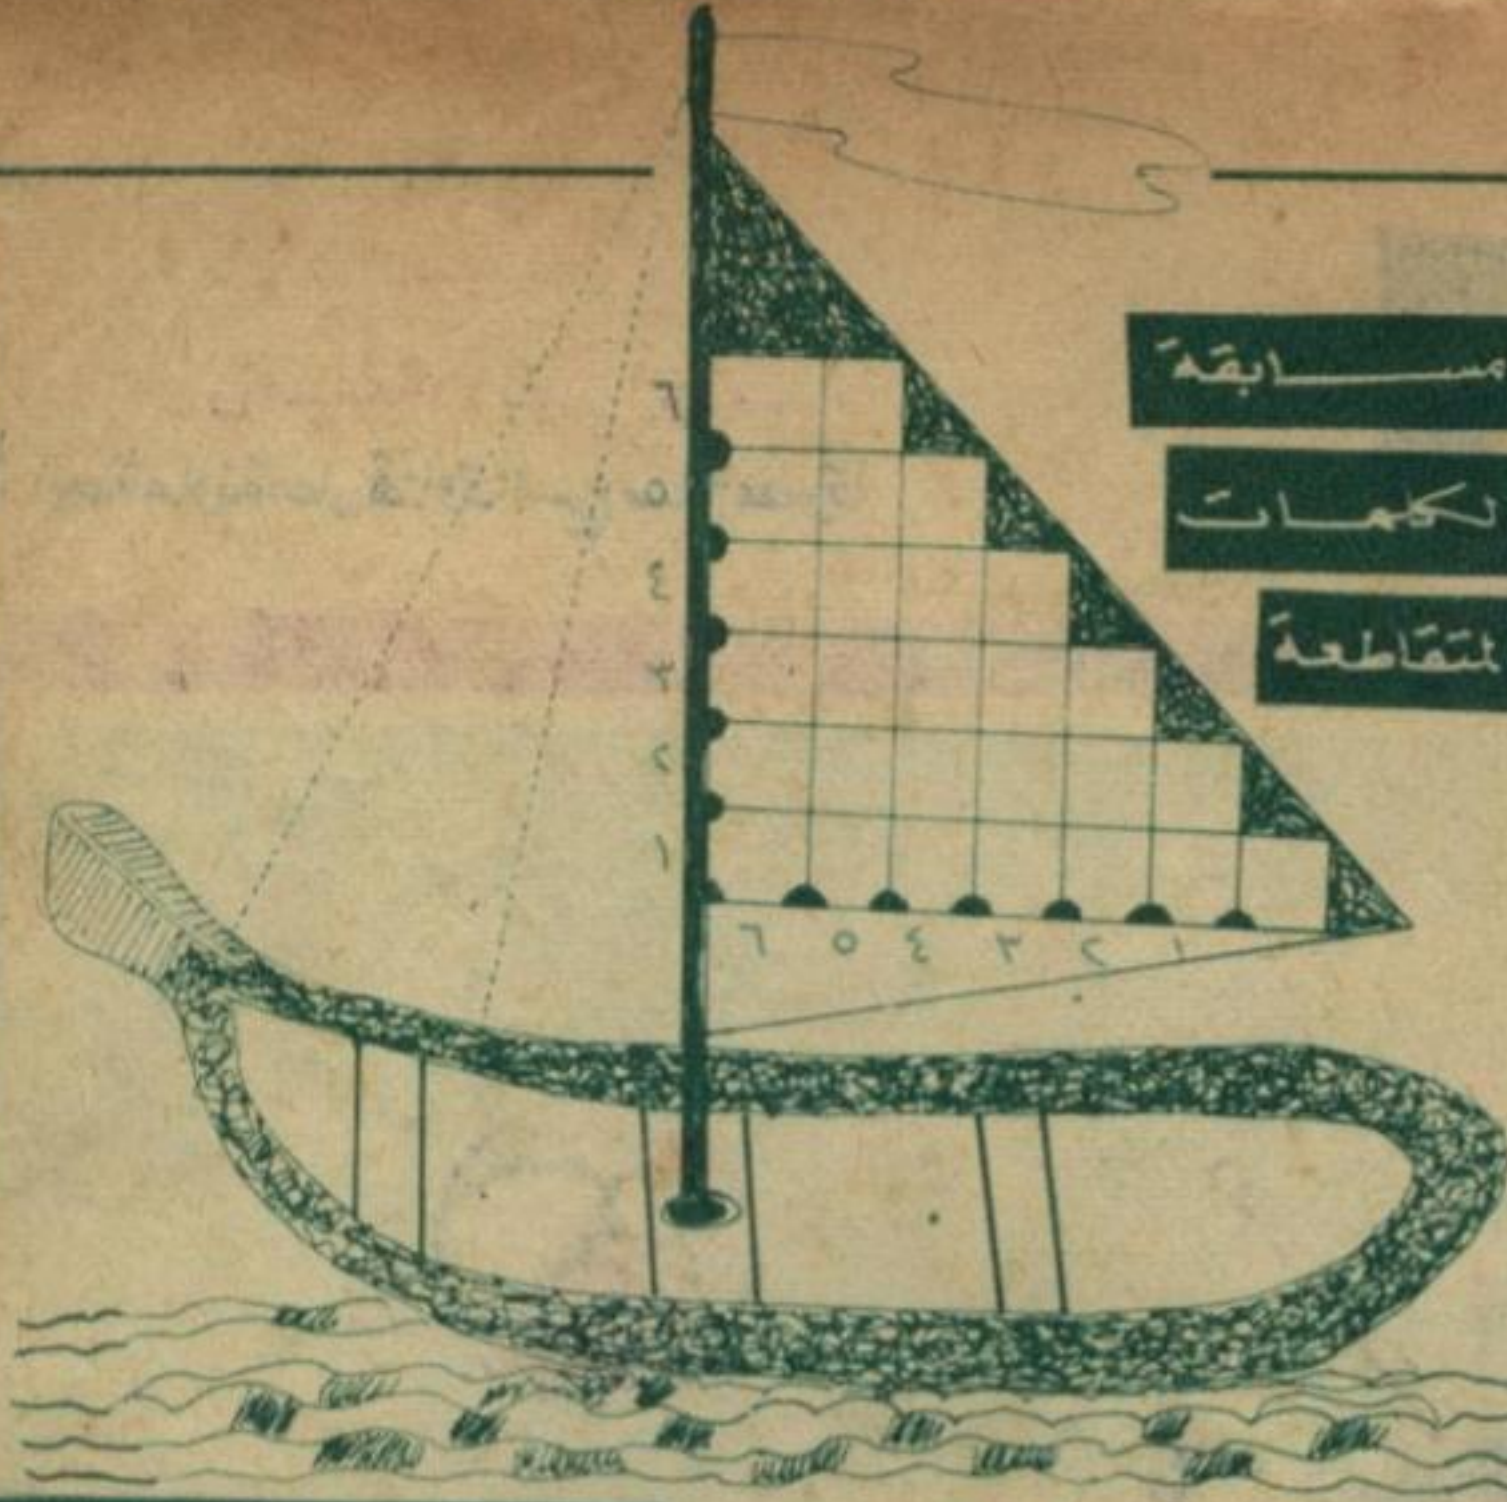 مسابقة
لكلمات
لمتقاطعة
٦
٥
٤
٣
٢
١
٦ ٥ ٤ ٣ ٢ ١